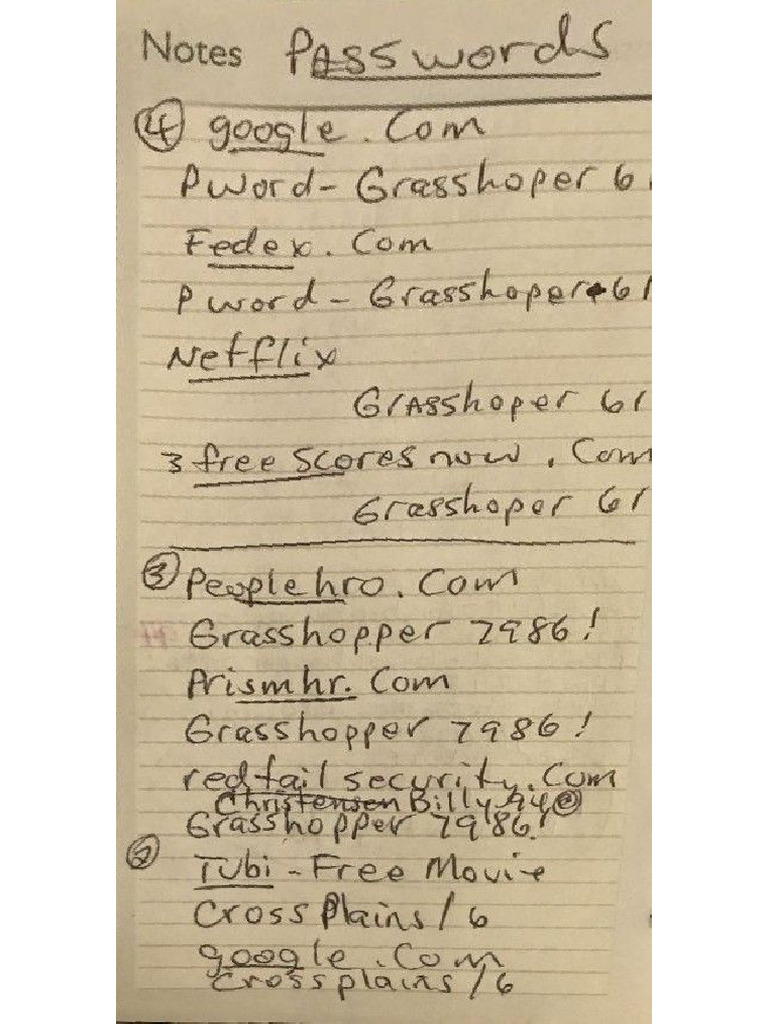 Notes Passwords
④ google.com
Pword - Grasshoper 61
Fedex.com
Pword - Grasshoper 61
Netflix
Grasshoper 61
3 free scores now.com
Grasshoper 61
③ Peoplehro.com
Grasshopper 7986!
Prismhr.com
Grasshopper 7986!
redtail security.com
Christensen Billy
Grasshopper 7986!
Tubi - Free Movie
CrossPlains/6
google.com
crossplains/6